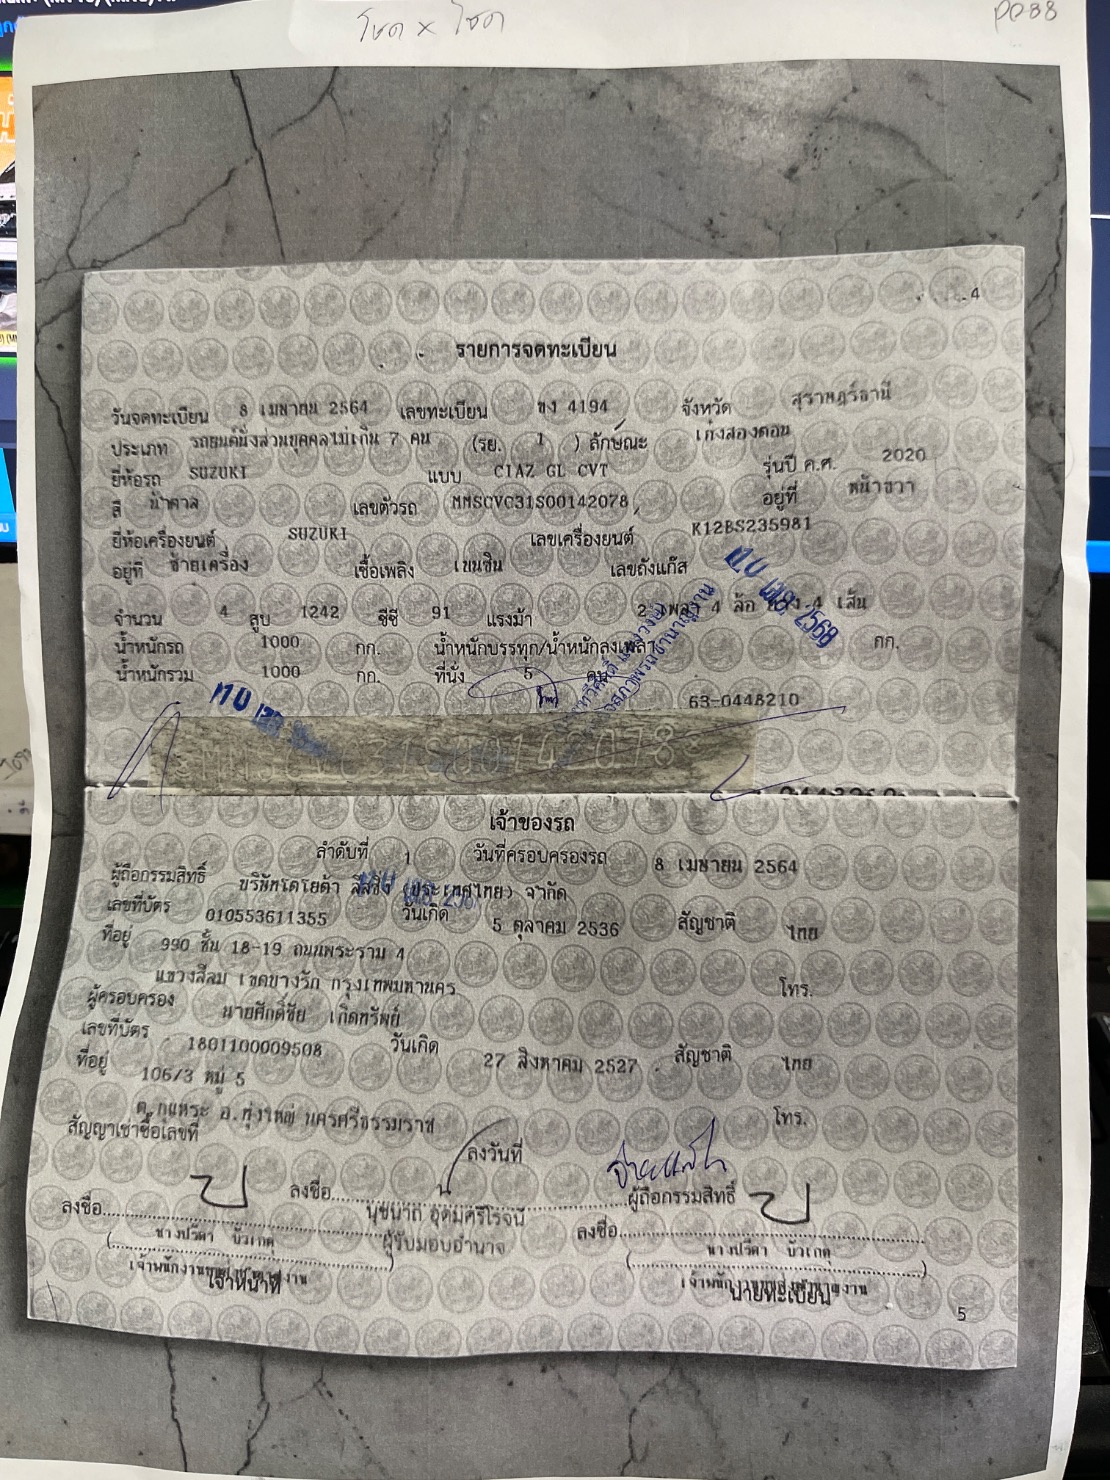 โชค x โชค
PQ88
4
รายการจดทะเบียน
วันจดทะเบียน 8 เมษายน 2564 เลขทะเบียน ขง 4194 จังหวัด สุราษฎร์ธานี
ประเภท รถยนต์นั่งส่วนบุคคลไม่เกิน 7 คน (รย. 1 ) ลักษณะ เก๋งสองตอน
ยี่ห้อรถ SUZUKI แบบ CIAZ GL CVT รุ่นปี ค.ศ. 2020
สี น้ำตาล เลขตัวรถ MMSCVC31S00142078 อยู่ที่ หน้าขวา
ยี่ห้อเครื่องยนต์ SUZUKI เลขเครื่องยนต์ K12BS235981
อยู่ที่ ซ้ายเครื่อง เชื้อเพลิง เบนซิน เลขถังแก๊ส
จำนวน 4 สูบ 1242 ซีซี 91 แรงม้า 2 เพลา 4 ล้อ ยาง 4 เส้น
น้ำหนักรถ 1000 กก. น้ำหนักบรรทุก/น้ำหนักลงเพลา กก.
น้ำหนักรวม 1000 กก. ที่นั่ง 5 คน
63-0448210
เม.ย. 2568
MMSCVC31S00142078
เจ้าของรถ
ลำดับที่ 1 วันที่ครอบครองรถ 8 เมษายน 2564
ผู้ถือกรรมสิทธิ์ บริษัทโตโยต้า ลีสซิ่ง (ประเทศไทย) จำกัด
เลขที่บัตร 010553611355 วันเกิด 5 ตุลาคม 2536 สัญชาติ ไทย
ที่อยู่ 990 ชั้น 18-19 ถนนพระราม 4
แขวงสีลม เขตบางรัก กรุงเทพมหานคร โทร.
ผู้ครอบครอง นายศักดิ์ชัย เกิดทรัพย์
เลขที่บัตร 1801100009508 วันเกิด 27 สิงหาคม 2527 สัญชาติ ไทย
ที่อยู่ 106/3 หมู่ 5
ต.กุแหระ อ.ทุ่งใหญ่ นครศรีธรรมราช โทร.
สัญญาเช่าซื้อเลขที่ ลงวันที่
ลงชื่อ ผู้ถือกรรมสิทธิ์
นุชนารถ อุดมศิริโรจน์
ผู้รับมอบอำนาจ
ลงชื่อ ลงชื่อ
นางปรีดา บัวเกตุ นางปรีดา บัวเกตุ
เจ้าหน้าที่ นายทะเบียน
5